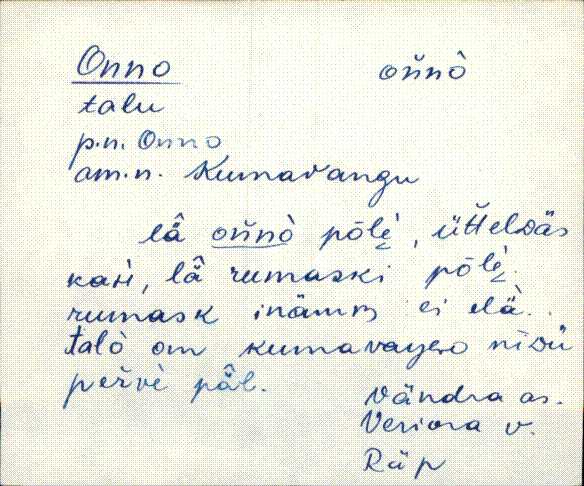 Onno oňnò
talu
p.n. Onno
am.n. Kumavangu
lä̂ oňnò pōlè, üťťelDäs
kaH, lä̂ rumaski pōlè.
rumask inämB ei elä̀.
talò om kumavaŋGo nīDü
pervè pä̂l.
Vändra as.
Veriora v.
Räp